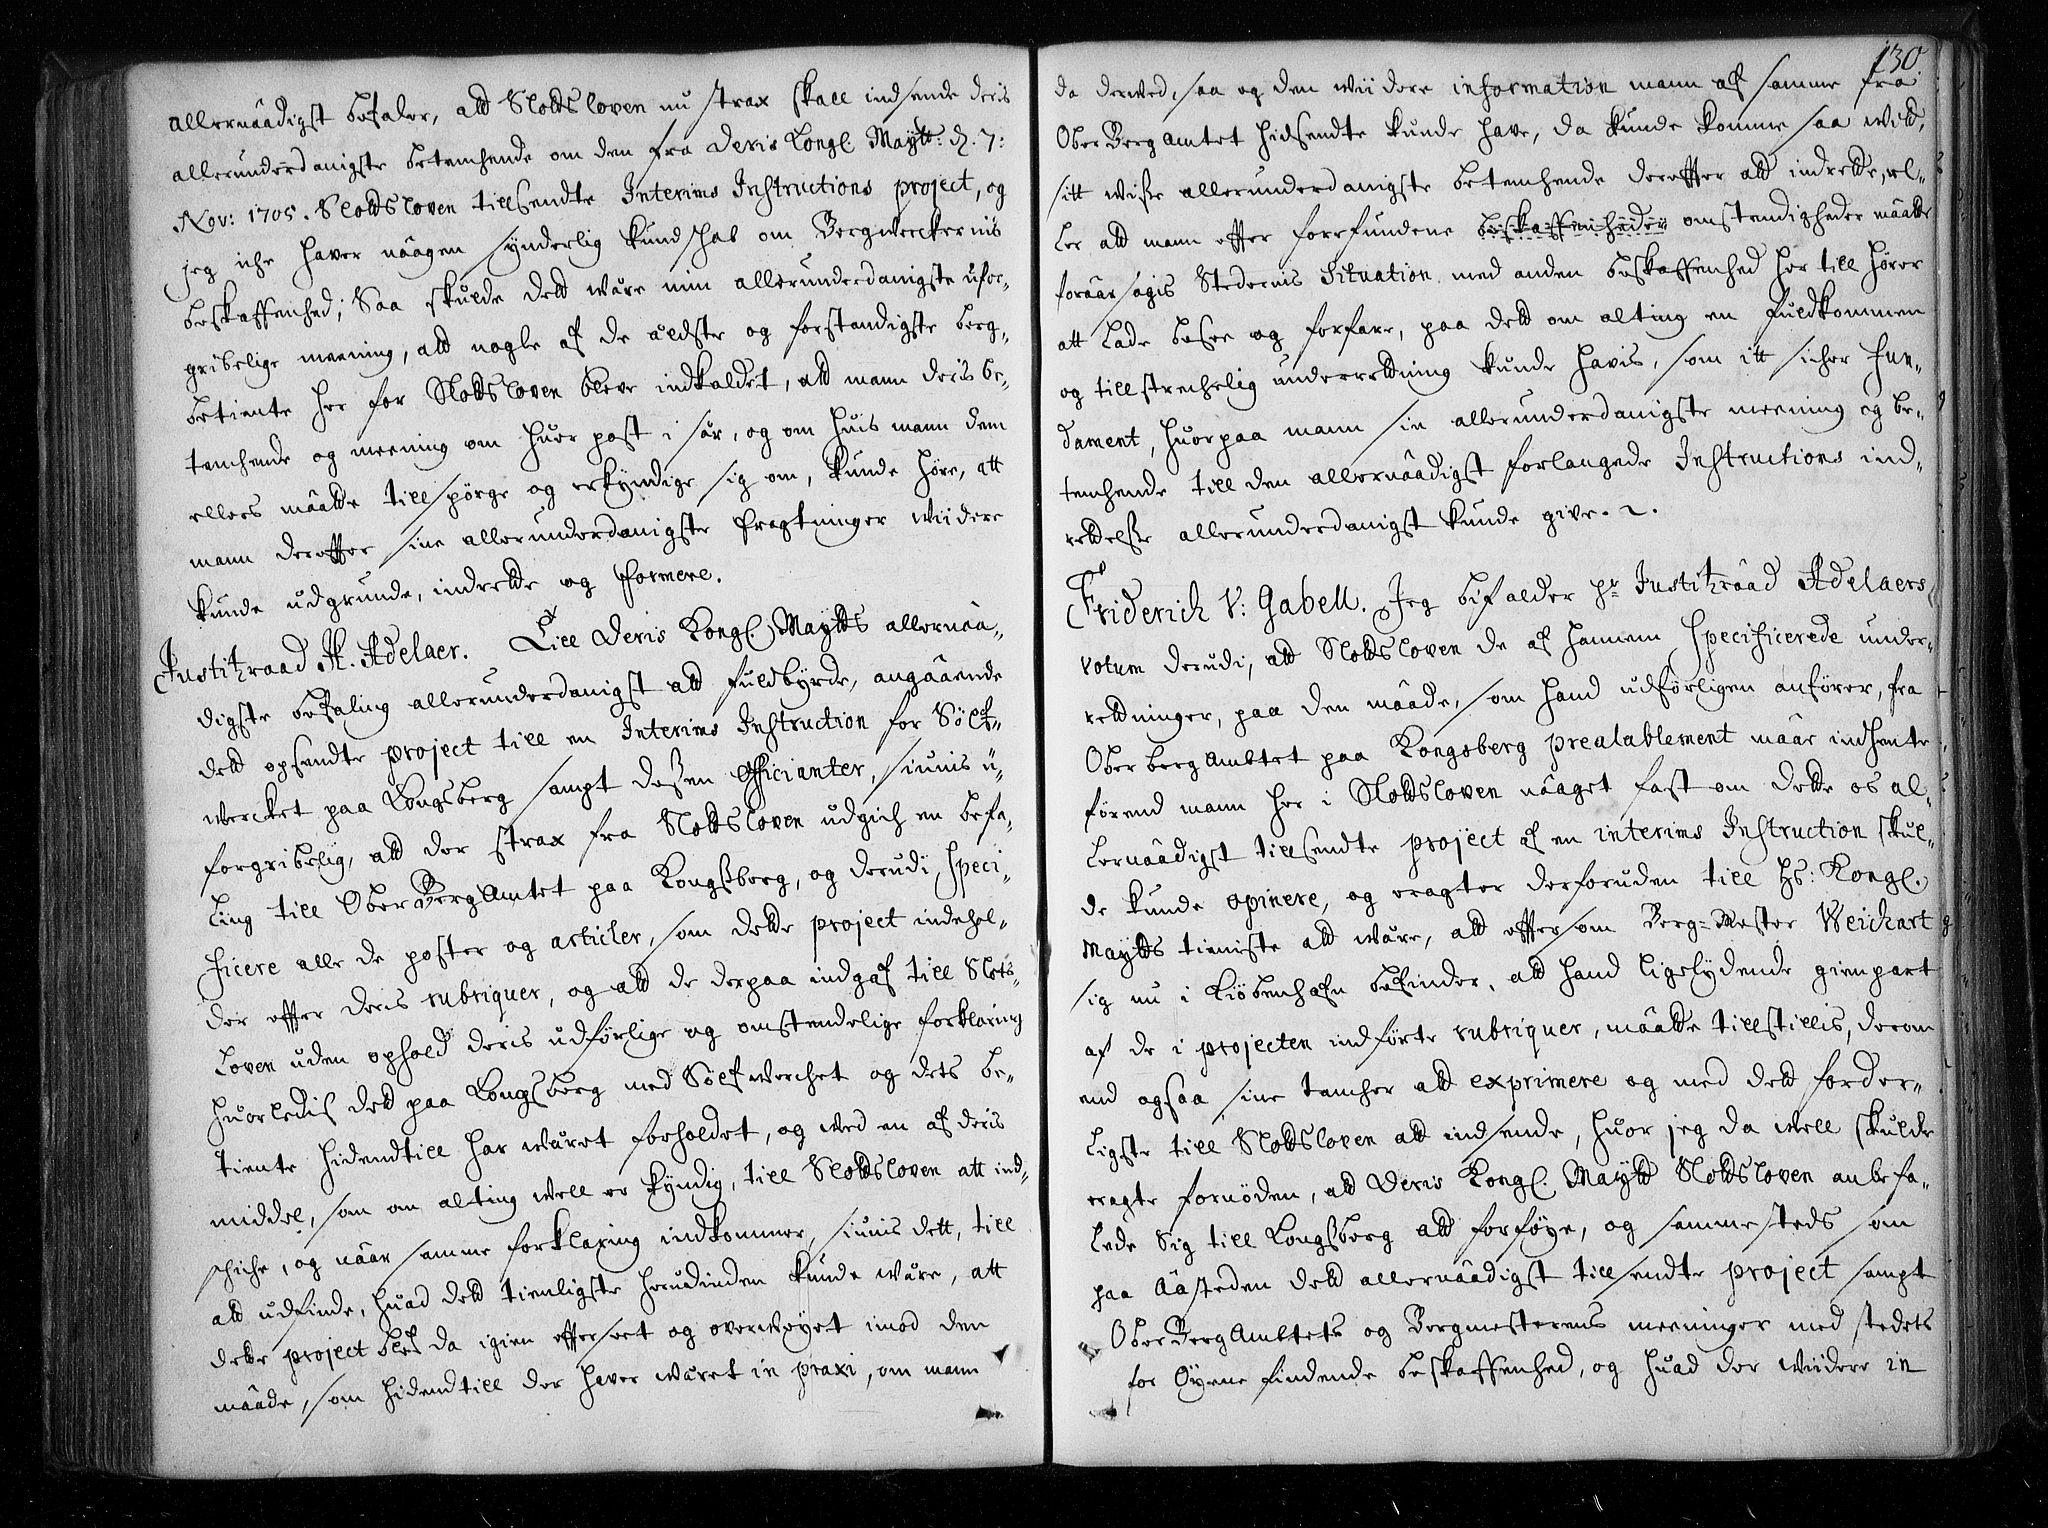 allernåådigst befaler, att Slottsloven nu strax skall indsende deris
allerunderdanigste betenchende om den fra Deris Kongl. Maytt: d. 7:
Nov: 1705. Slottsloven tillsendte Interims Instructions project, og
jeg iche haver nåågen synderlig kundschab om Bergwerckernis
beskaffenhed; Saa skulde dett være min allerunderdanigste ufor-
gribelige meening, att nogle af de ældste og forstandigste berg-
betiente her for Slottsloven bleve indkaldet, att mann deris be-
tenchende og meening om huer post i sær, og om huis mann dem
ellers måatte tillspörge og erkyndige sig om, kunde höre, att
mann derefter sine allerunderdanigste fragtninger viidere
kunde udgrunde, indrette og formere.
Justitzraad H. Adelaer. Till Deris Kongl. Maytts allernåå-
digste befaling allerunderdanigst att fuldbyrde, angåaende
dett opsendte project till en Interims Instruction for Sölf-
wercket paa Kongsberg sampt deßen Officianter, siunis u-
forgribelig, att der strax fra Slottsloven udgich en befa-
ling till OberBergAmtet paa Kongßberg, og derudi speci-
ficere alle de poster og articler, som dette project indehol-
der effter deris rubriquer, og att de derpaa indgaf till Slots-
loven uden ophold deris udförlige og omstendelige forklaring
huorledis dett paa Kongsberg med Sölfwerchet og dets be-
tiente hidendtill har været forholdet, og ved en af deris
middel, som om alting well er kyndig, till Slottsloven att ind-
schiche, og nåar samme forklaring indkommer, siunis dett, till
att udfinde, huad dett tienligste herudinden kunde være, att
dette project blef da igien effterseet og overweyet imod den
måade, som hidendtill der haver været in praxi, om mann
130.
da derved, saa og den viidere information mann af samme fra
OberBergAmtet hidsendte kunde have, da kunde komme saa vid,
sitt wiße allerunderdanigste betenchende dereffter att indrette, el-
ler att mann effter forefundene beskaffenheder omstendigheder måatte
foråarsagis Stedernis Situation med anden beskaffenhed her till hörer
att lade besee og forfare, paa dett om alting en fuldkommen
og tillstrechelig underretning kunde havis, som itt sicher Fun-
dament, huorpaa mann sin allerunderdanigste meening og be-
tenchende till den allernåadigst forlangede Instructions ind-
rettelße allerunderdanigst kunde give. 2.
Friderich V: Gabell. Jeg bifalder Hr Justitzraad Adelaers
votum derudi, att Slottsloven de af hannem specificerede under-
retninger, paa den måade, som hand udförligen anförer, fra
Oberbergambtet paa Kongsberg prealablement måae indhente
förend mann her i Slottsloven nåaget fast om dette os al-
lernåadigst tillsendte project af en interims Instruction skul-
de kunde opinere, og eragter derforuden till Hs: Kongl.
Maytts tieniste att være, att effter som Berg-Mester Weichart
sig nu i Kiöbenhafn befinder, att hand ligelydende gienpart
af de i projecten indförte rubriquer, måatte tillstillis, derom
end ogsaa sine tancher att exprimere og med dett forder-
ligste till Slottsloven att indsende, huor jeg da well skulde
eragte fornöden, att Deris Kongl. Maytt Slottsloven anbefa-
lede Sig till Kongßberg att forföye, og sammesteds som
paa Aasteden dett allernåadigst tillsendte project sampt
OberBergAmbtets og Bergmesterens meeninger med stedets
for Öyene findende beskaffenhed, og huad der viidere in